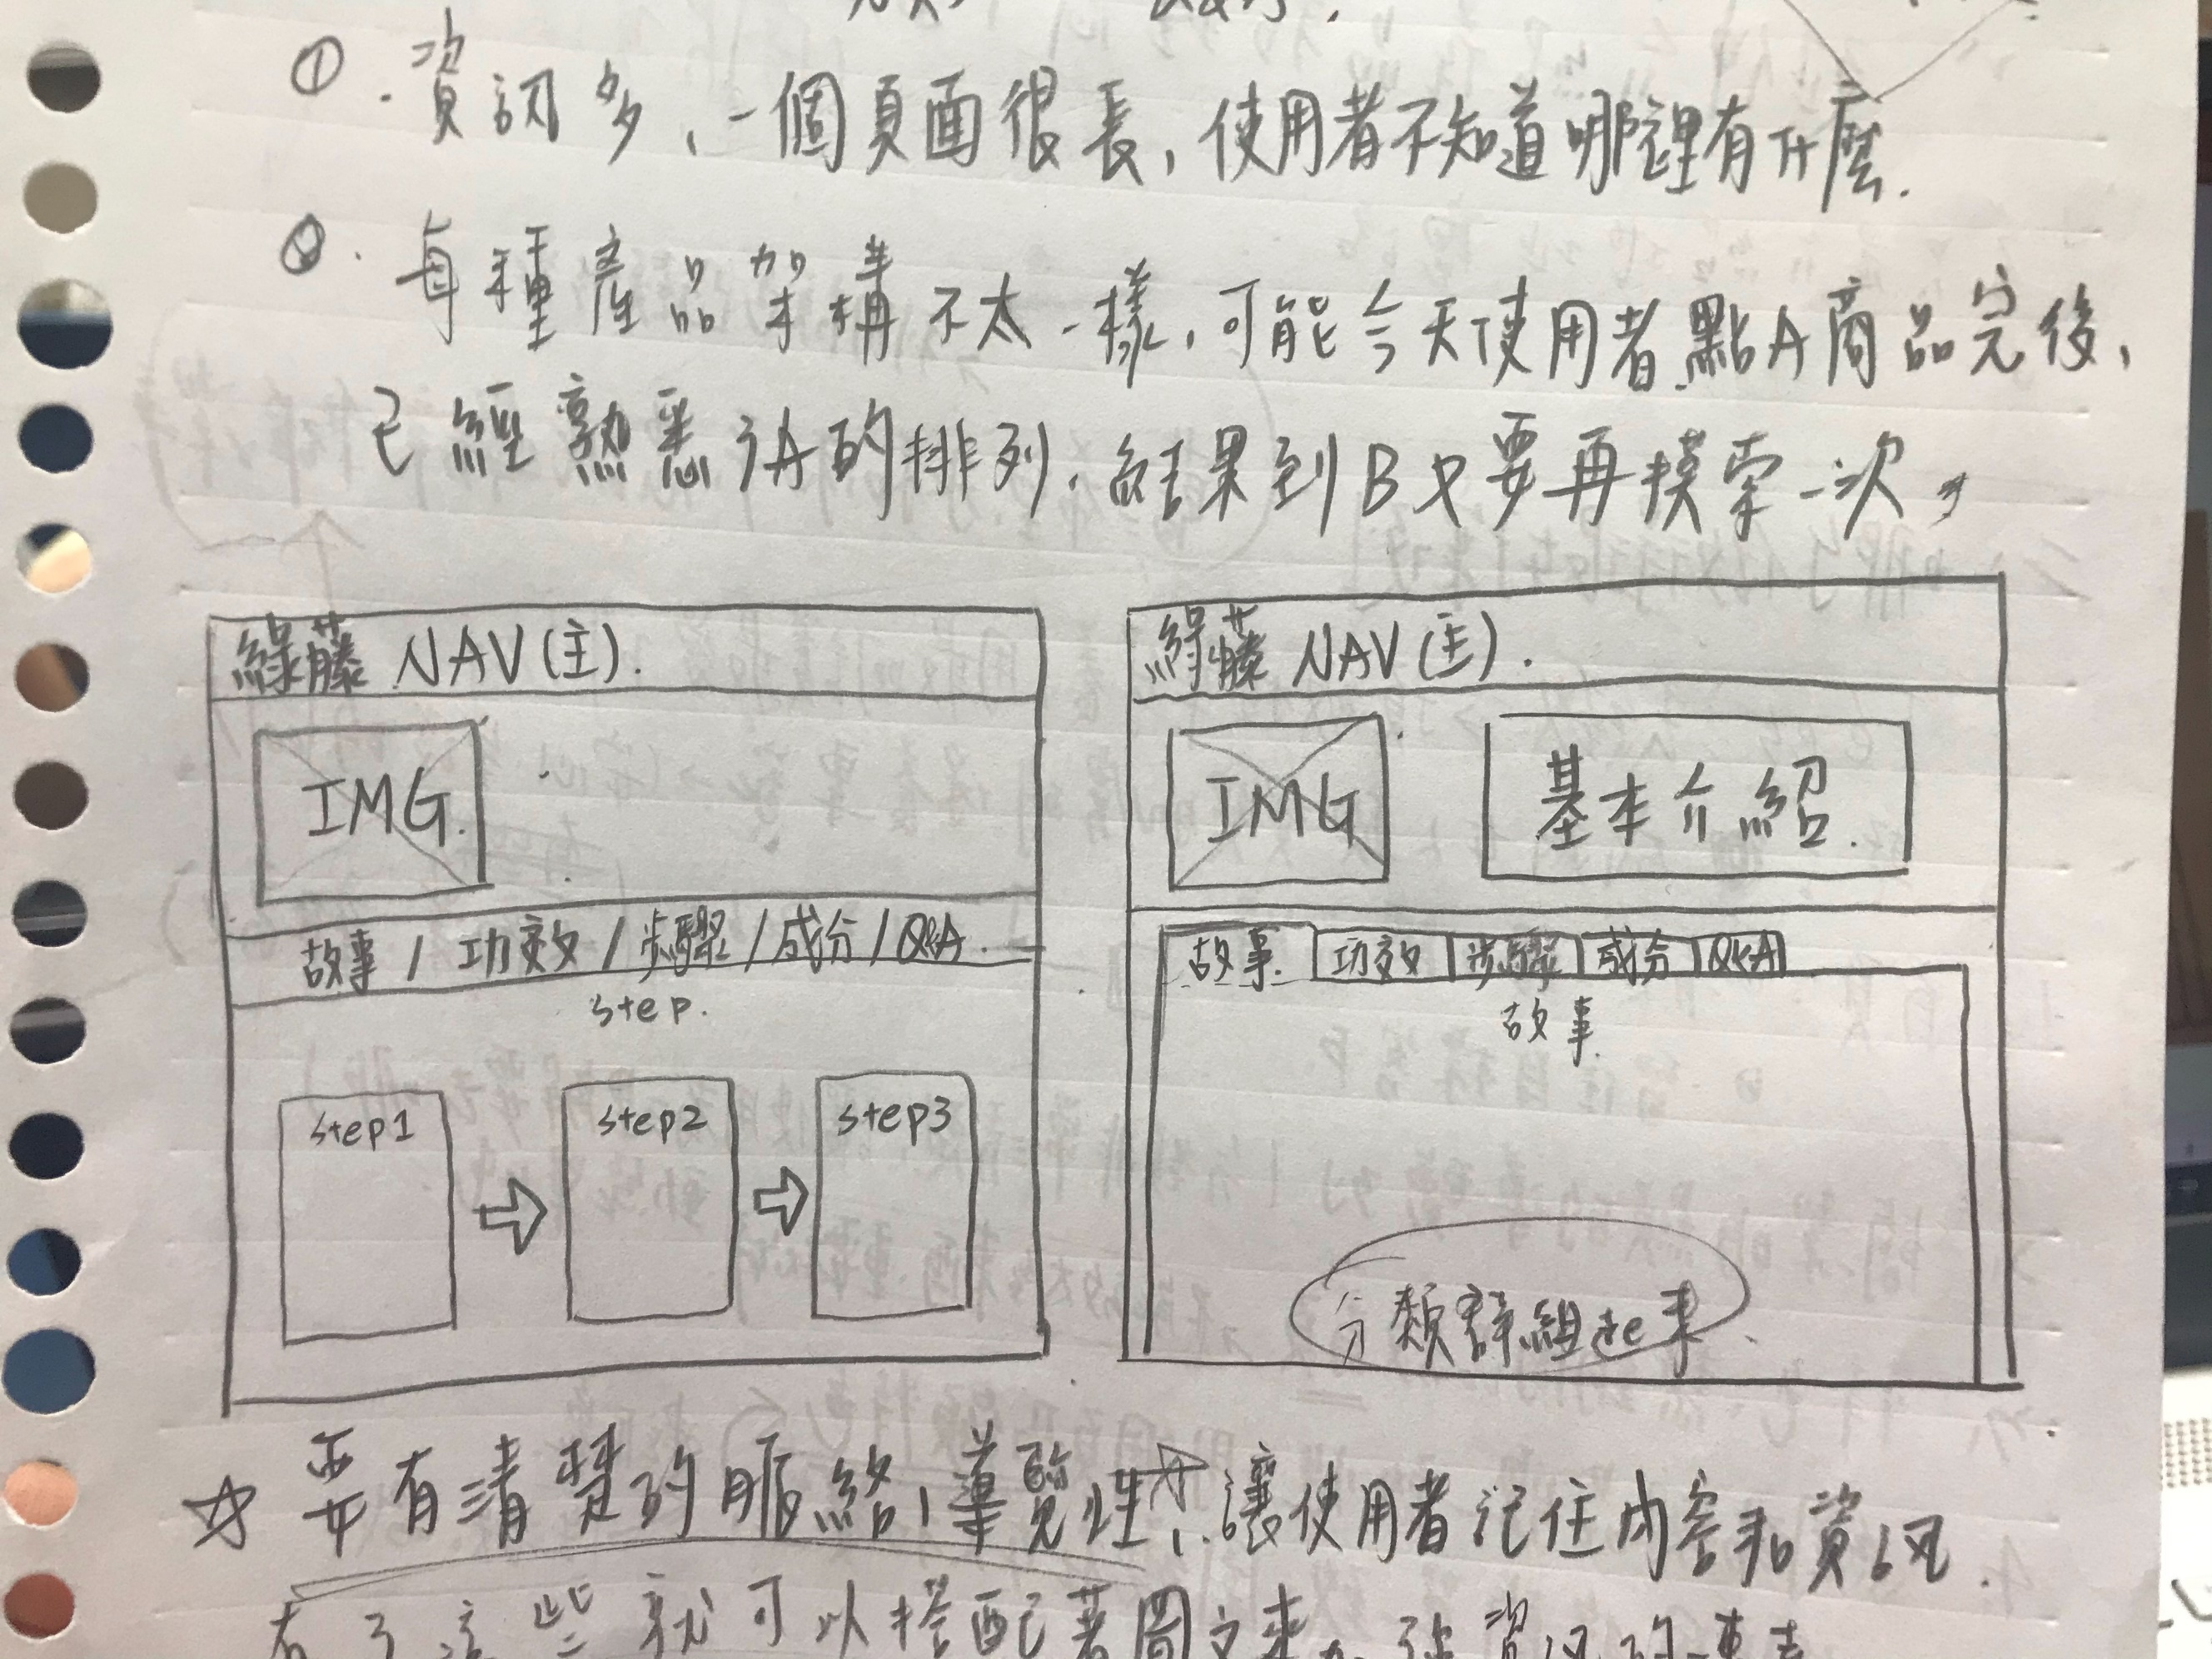 ①. 資訊多、一個頁面很長，使用者不知道哪裡有什麼.
②. 每種產品架構不太一樣，可能今天使用者點A商品完後，
已經熟悉A的排列，結果到B又要再摸索一次，
綠藤 NAV(主).
IMG.
故事 / 功效 / 步驟 / 成分 / Q&A.
step.
step1
step2
step3
綠藤 NAV(主).
IMG
基本介紹.
故事. 功效 步驟 成分 Q&A
故事.
分類群組起來
☆ 要有清楚的脈絡，導覽性↑，讓使用者記住內容和資訊.
有了這些就可以搭配著圖文來